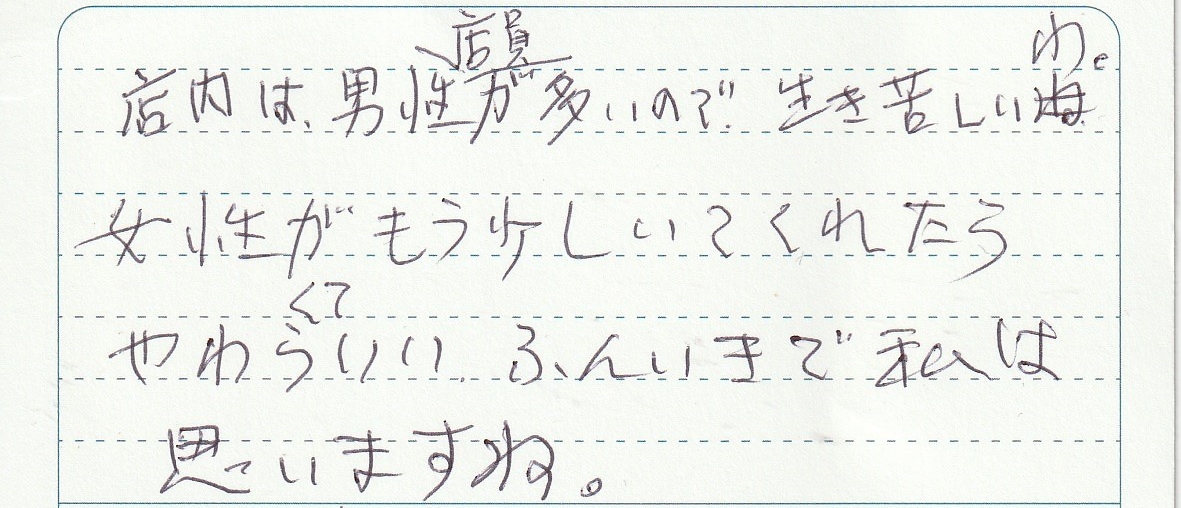 店内は、男性店員が多いので、生き苦しいわ。
女性がもう少しいてくれたら
やわらくていい、ふんいきで私は
思っいますね。